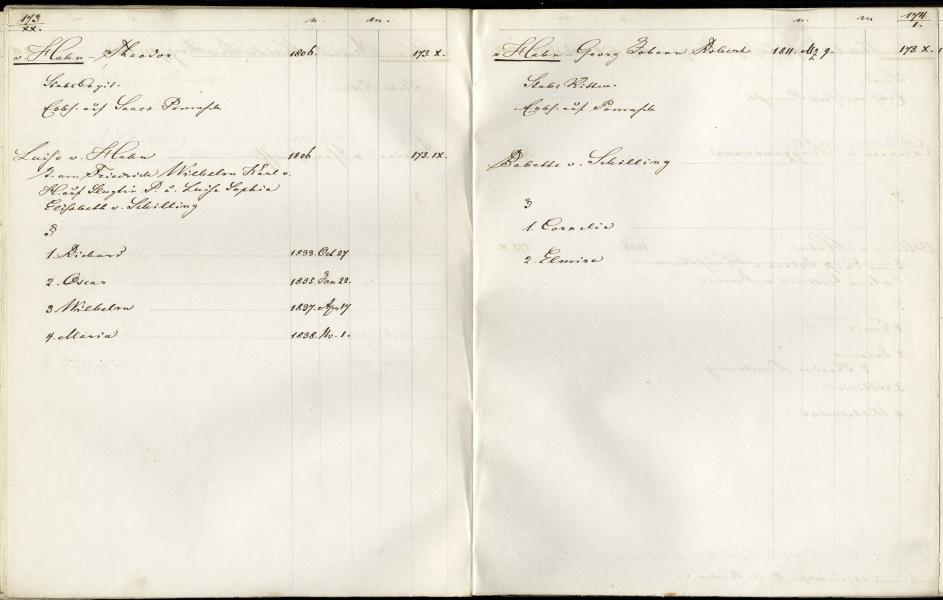 173
XX.
n. m.
v. Hahn – Theodor 1806. 173. X.
Stabs Capit.
Erbh. auf Sanct Pomusch
Luise v. Hahn 1806 173. IX.
T. von Friedrich Wilhelm Karl v.
H. auf P. u. Luise Sophia
Elisabeth v. Schilling
1. Richard 1833. Oct 27
2. Oscar 1835. Jan 22.
3. Wilhelm 1837. Apr 17
4. Maria 1838. Nv. 1.
174
1.
n. m
v. Hahn Georg Johann Robert 1811. Mz 9. 173. X.
Stabs Rittm.
Erbh. auf Pomusch
Babette v. Schilling
1. Cornelie
2. Elmire